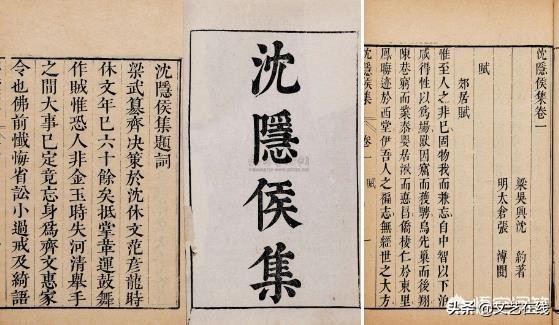 沈隱侯集題詞
梁武篡齊決策於沈休文范彥龍時
休文年已六十餘矣抵掌革運鼓舞
作賊惟恐人非金玉時失河清舉手
之間大事已定竟忘身爲齊文惠家
令也佛前懺悔省訟小過戒及綺語
沈隱侯集
沈隱侯集卷一
梁吳興沈 約著
明太倉張 溥閱
賦
郊居賦
惟至人之非己固物我而兼忘自中智以下洎
咸得性以爲場獸因窟而獲騁鳥先巢而後翔
陳巷窮而業泰嬰居湫而德昌僑棲仁於東里
鳳晦迹於西堂伊吾人之褊志無經世之大方
沈隱侯集 卷一 賦
头条 @文艺在线